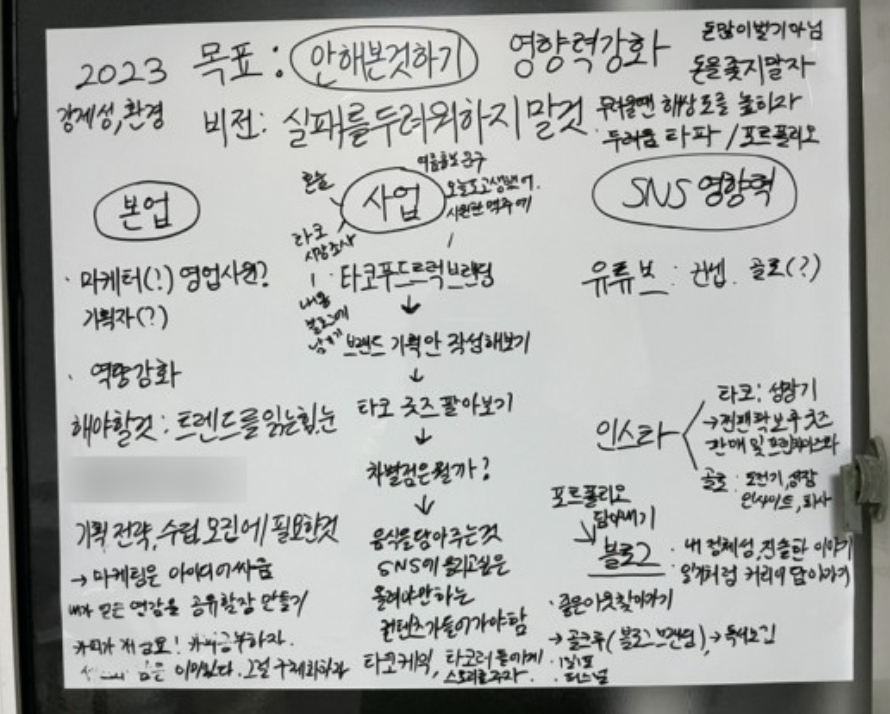 2023 목표 : 안해본것하기 영향력강화
돈많이벌기아님
돈을좇지말자
강제성, 환경
비전 : 실패를두려워하지말것
두려울땐 해상도를 높이자
· 두려움 타파 / 포트폴리오
본업
· 마케터(?) 영업사원?
기획자(?)
· 역량강화
해야할것 : 트렌드를읽는힘,눈
기획 전략, 수립, 모집에 필요한것
→ 마케팅은 아이디어싸움
내가 얻은 영감을 공유할장 만들기
사업
오늘도고생했어.
시원한맥주에
타코
시장조사
내용
블로그에
남기기
타코푸드트럭브랜딩
↓
브랜드 기획안 작성해보기
↓
타코 굿즈 팔아보기
↓
차별점은뭘까?
↓
음식을담아주는것
SNS에 올리고싶은
올려야만하는
컨텐츠가들어가야함
스토리를주자.
SNS 영향력
유튜브 : 컨셉. 골로(?)
인스타
타코 : 성장기
판매 및 프랜차이즈화
골로 : 도전기, 성장
인사이트, 회사
포트폴리오
담아내기
블로그
· 내 정체성, 진솔한 이야기
· 일기처럼 커리어 담아가기
· 좋은이웃찾아가기
→ 골크루 (블로그브랜딩), → 독서모임